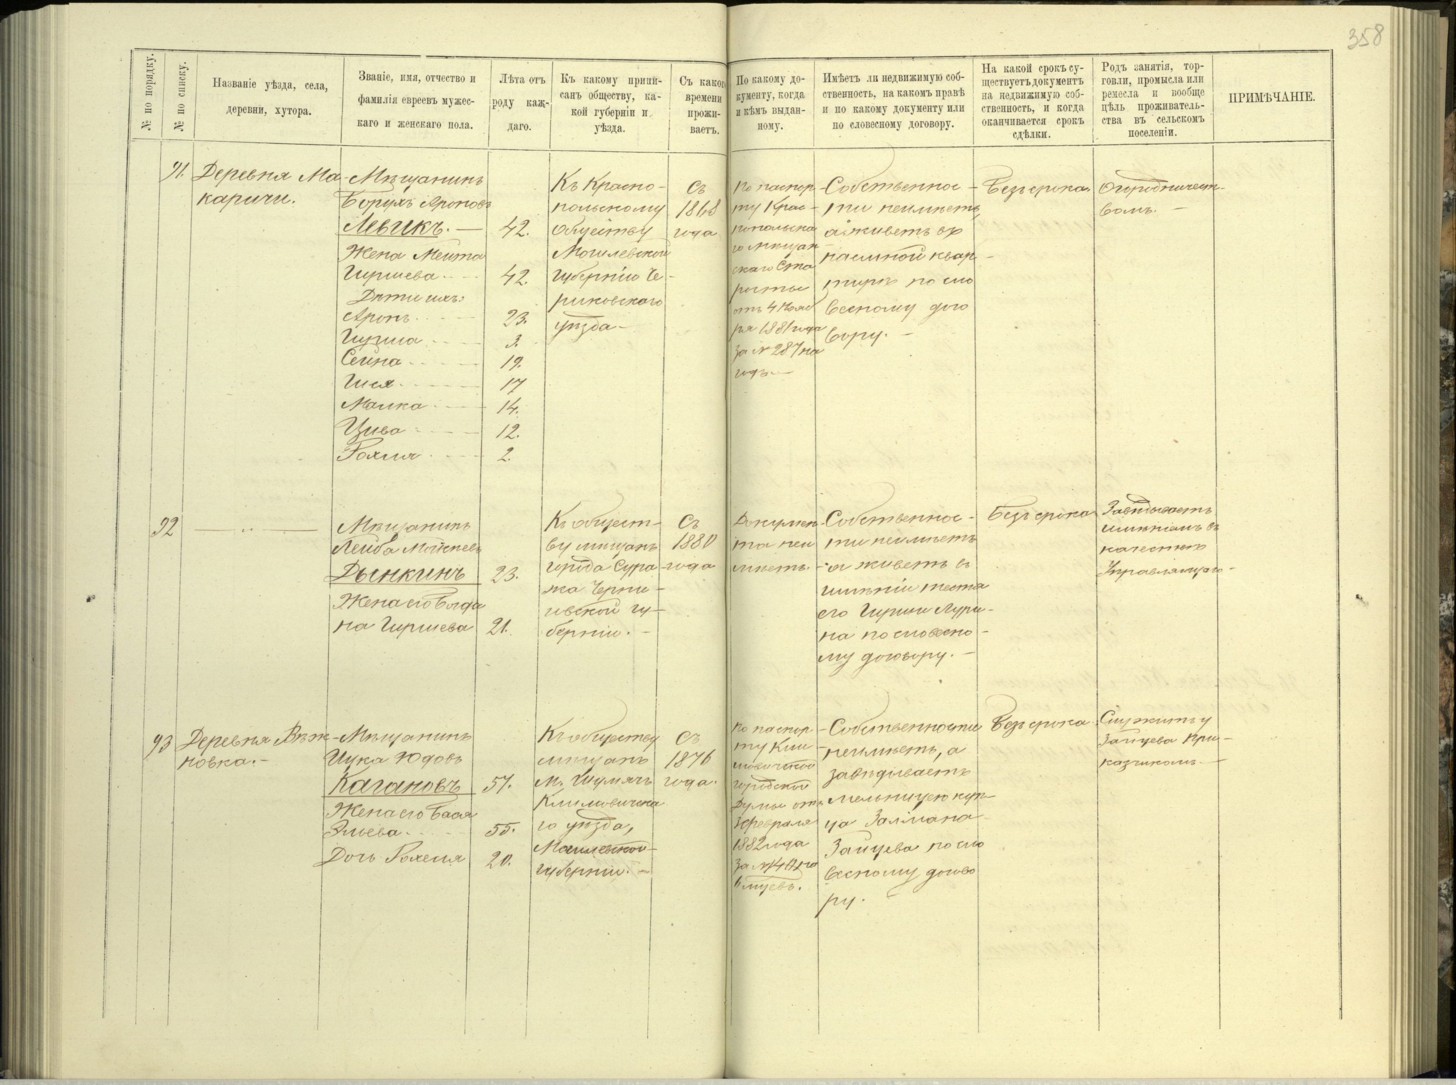 358
№ по порядку.
№ по списку.
Названіе уѣзда, села,
деревни, хутора.
Званіе, имя, отчество и
фамилія евреевъ мужес-
каго и женскаго пола.
Лѣта отъ
роду каж-
даго.
Къ какому припи-
санъ обществу, ка-
кой губерніи и
уѣзда.
Съ какого
времени
прожи-
ваетъ.
По какому до-
кументу, когда
и кѣмъ выдан-
ному.
Имѣетъ ли недвижимую соб-
ственность, на какомъ правѣ
и по какому документу или
по словесному договору.
На какой срокъ су-
ществуетъ документъ
на недвижимую соб-
ственность, и когда
оканчивается срокъ
сдѣлки.
Родъ занятія, тор-
говли, промысла или
ремесла и вообще
цѣль проживатель-
ства въ сельскомъ
поселеніи.
ПРИМѢЧАНІЕ.
91.
Деревня Ма-
каричи.
Мѣщанинъ
Борухъ Ароновъ
Левикъ. 42.
Жена
Гиршева 42.
Дѣти ихъ:
Аронъ 23.
Сейна 19.
Шея 17
Малка 14.
Цива 12.
2.
Къ Красно-
польскому
обществу
Могилевской
губерніи Че-
риковского
уѣзда
Съ
1868
года
По паспор-
ту Крас-
нопольска
го мѣщан-
скаго Ста
росты
отъ 4 Нояб
ря 1881 года
за № 287 на
годъ
Собственнос-
ти неимѣетъ,
а живетъ въ
наемной квар-
тирѣ по сло
весному дого
вору.
Безъ срока
Огородничест-
вомъ.
92
Мѣщанинъ
Лейба
Дынкинъ 23.
Жена его
на Гиршева 21.
Къ общест-
ву мѣщанъ
города Сура
жа Черни-
говской гу-
берніи.
Съ
1880
года
Докумен-
та неи
мѣетъ
Собственнос-
ти неимѣетъ
а живетъ въ
имѣніи тестя
его
на по словесно-
му договору.
Безъ срока
Завѣдываетъ
имѣніемъ въ
качествѣ
Управляющаго
93
Деревня Вѣж-
новка.
Мѣщанинъ
Юдовъ
Кагановъ 57.
Жена его Бася
Эльева 55.
Дочь 20.
Къ обществу
мѣщанъ
м. Шумячъ
Климовичска
го уѣзда,
Могилевской
губерніи.
Съ
1876
года.
По паспор-
ту Кли-
мовичской
городской
Думы отъ
февраля
1882 года
Собственности
неимѣетъ, а
завѣдываетъ
мельницею куп-
ца Залмана
Зайцева по сло
весному догово
ру.
Безъ срока
Служитъ у
Зайцева при-
казчикомъ